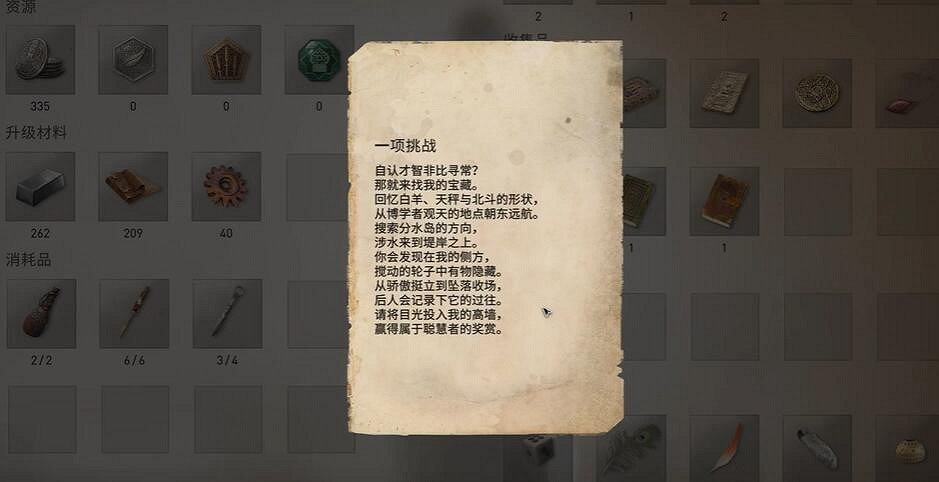 资源
335
0
0
0
升级材料
262
209
40
消耗品
2/2
6/6
3/4
一项挑战
自认才智非比寻常?
那就来找我的宝藏。
回忆白羊、天秤与北斗的形状，
从博学者观天的地点朝东远航。
搜索分水岛的方向，
涉水来到堤岸之上。
你会发现在我的侧方，
搅动的轮子中有物隐藏。
从骄傲挺立到坠落收场，
后人会记录下它的过往。
请将目光投入我的高墙，
赢得属于聪慧者的奖赏。
2
1
2
收集品
1
1